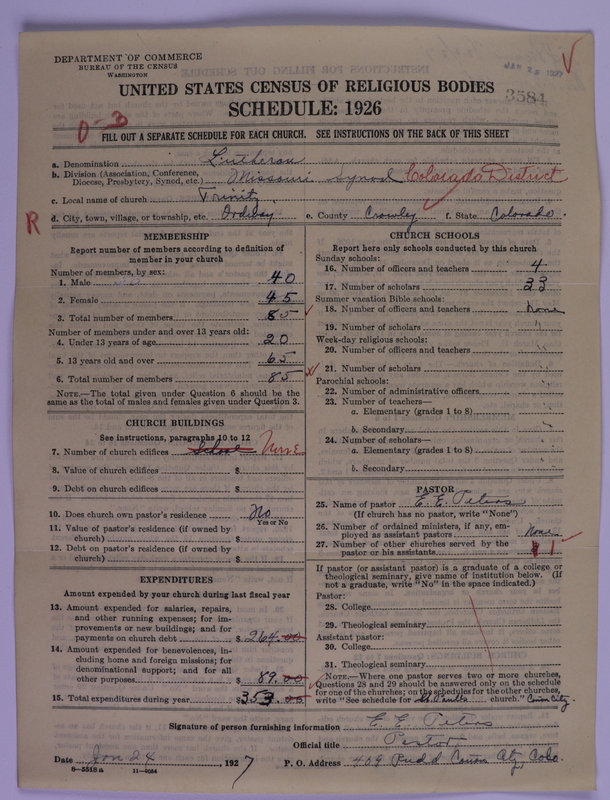 DEPARTMENT OF COMMERCE
BUREAU OF THE CENSUS
WASHINGTON
UNITED STATES CENSUS OF RELIGIOUS BODIES
SCHEDULE: 1926
3584
0-3
FILL OUT A SEPARATE SCHEDULE FOR EACH CHURCH. SEE INSTRUCTIONS ON THE BACK OF THIS SHEET
a. Denomination Lutheran
b. Division (Association, Conference, Diocese, Presbytery, Synod, etc.) Missouri Synod Colorado District
c. Local name of church Trinity
R
d. City, town, village, or township, etc. Ordway e. County Crowley f. State Colorado.
MEMBERSHIP
Report number of members according to definition of
member in your church
Number of members, by sex:
1. Male 40
2. Female 45
3. Total number of members 85
Number of members under and over 13 years old:
4. Under 13 years of age 20
5. 13 years old and over 65
6. Total number of members 85
NOTE.—The total given under Question 6 should be the
same as the total of males and females given under Question 3.
CHURCH BUILDINGS
See instructions, paragraphs 10 to 12
7. Number of church edifices School None
8. Value of church edifices $
9. Debt on church edifices $
10. Does church own pastor's residence No
Yes or No
11. Value of pastor's residence (if owned by
church) $
12. Debt on pastor's residence (if owned by
church) $
EXPENDITURES
Amount expended by your church during last fiscal year
13. Amount expended for salaries, repairs,
and other running expenses; for im-
provements or new buildings; and for
payments on church debt $ 264.00
14. Amount expended for benevolences, in-
cluding home and foreign missions; for
denominational support; and for all
other purposes $ 89.00
15. Total expenditures during year $ 353.00
CHURCH SCHOOLS
Report here only schools conducted by this church
Sunday schools:
16. Number of officers and teachers 4
17. Number of scholars 33
Summer vacation Bible schools:
18. Number of officers and teachers None
19. Number of scholars "
Week-day religious schools:
20. Number of officers and teachers "
21. Number of scholars "
Parochial schools:
22. Number of administrative officers "
23. Number of teachers—
a. Elementary (grades 1 to 8) "
b. Secondary "
24. Number of scholars—
a. Elementary (grades 1 to 8) "
b. Secondary "
PASTOR
25. Name of pastor E. E. Peters
(If church has no pastor, write "None")
26. Number of ordained ministers, if any, em-
ployed as assistant pastors None
27. Number of other churches served by the
pastor or his assistants 1
If pastor (or assistant pastor) is a graduate of a college or
theological seminary, give name of institution below. (If
not a graduate, write "No" in the space indicated.)
Pastor:
28. College
29. Theological seminary
Assistant pastor:
30. College
31. Theological seminary
NOTE.—Where one pastor serves two or more churches,
Questions 28 and 29 should be answered only on the schedule
for one of the churches; on the schedules for the other churches,
write "See schedule for St. Pauls church." Canon City.
Signature of person furnishing information E. E. Peters
Official title Pastor
Date Jan 24, 1927 P. O. Address 409 Rudd Canon City, Colo.
8-5518 a 11-9034